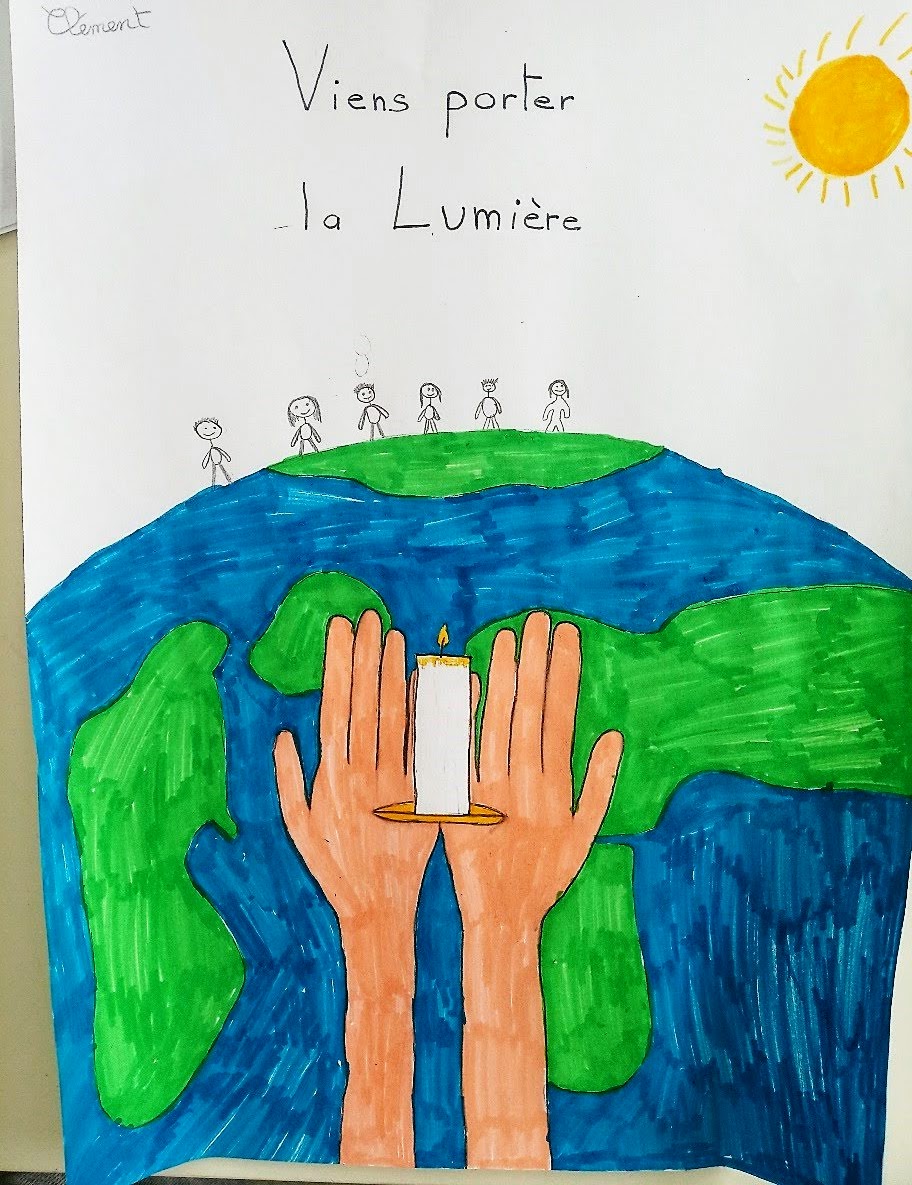 Clément
Viens porter
la Lumière